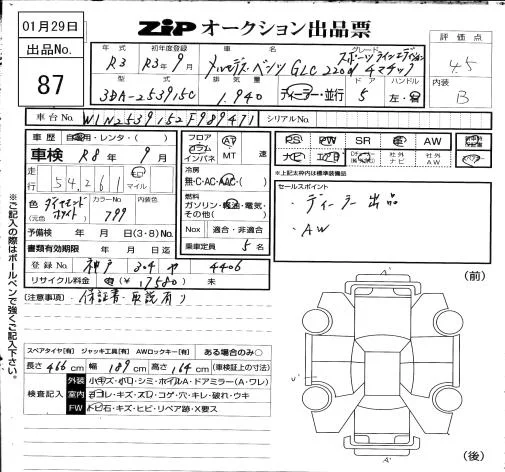 01月29日
ZIP オークション出品票
出品No.
87
評価点
4.5
内装
B
年式 初年度登録 車名 グレード
R3 R3年9月 メルセデス・ベンツ GLC 220d 4マチック スポーツラインエディション
型式 排気量 ドア ハンドル
3DA-253915C 1,940 ディーラー・並行 5 左・右
車台No. W1N2539152F989471 シリアルNo.
車歴 自家用・レンタ・( )
車検 R8年9月
走行 54,261 km マイル
色 ダイヤモンドホワイト (元色) カラーNo. 799 内装色
予備検 年 月 日(3・8)No.
書類有効期限 年 月 日迄
登録No. 神戸 304 や 4406
リサイクル料金 済 (¥17580) 未
フロア コラム インパネ AT MT 速
冷房 無・C・AC・AAC・( )
燃料 ガソリン・軽油・電気・その他( )
Nox 適合・非適合
乗車定員 5 名
PS PW SR 革 AW
ナビ エアB 社外ナビ 社外AW
※上記太枠内は標準装備品
セールスポイント
・ディーラー出品
・AW
(注意事項)・保証書・取説有り
※ご記入の際はボールペンで強くご記入下さい。
スペアタイヤ[有] ジャッキ工具[有] AWロックキー[有] ある場合のみ○
長さ 466 cm 幅 189 cm 高さ 164 cm (車検証上の寸法)
検査記入
外装 小キズ・小凹・シミ・ホイルA・ドアミラー(A・ワレ)
室内 ヨゴレ・キズ・スレ・コゲ・穴・キレ・破れ・ウキ
FW トビ石・キズ・ヒビ・リペア跡・X要ス
(前)
A'
U'
A'
(後)